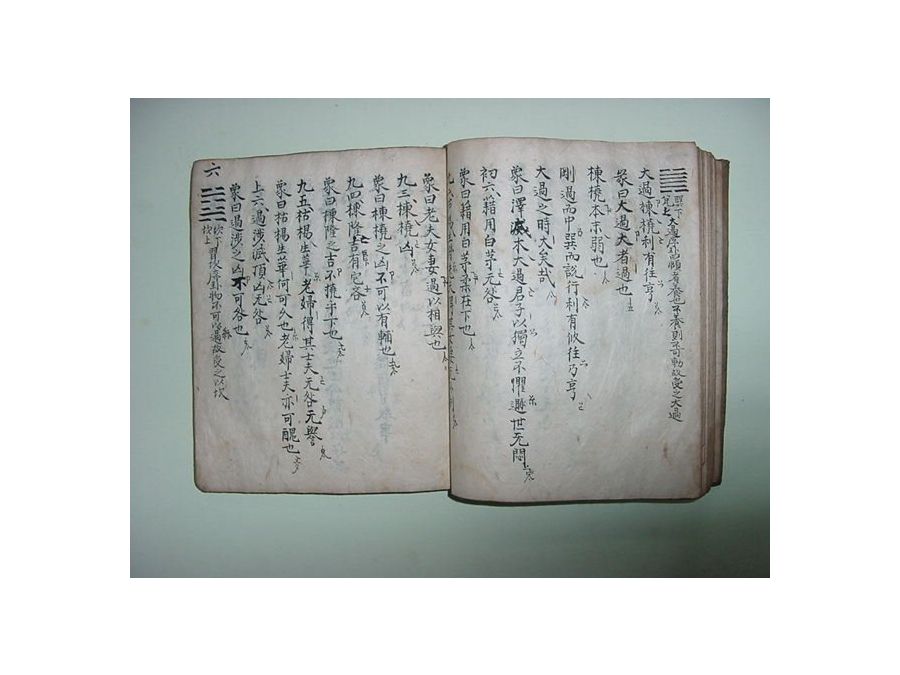 巽下兌上大過序卦曰頤者養也不養則不可動故受之大過
大過棟橈利有往亨
彖曰大過大者過也
棟橈本末弱也
剛過而中巽而說行利有攸往乃亨
大過之時大矣哉
象曰澤滅木大過君子以獨立不懼遯世无悶
初六藉用白茅无咎
象曰藉用白茅柔在下也
象曰老夫女妻過以相與也
九三棟橈凶
象曰棟橈之凶不可以有輔也
九四棟隆吉有它吝
象曰棟隆之吉不橈乎下也
九五枯楊生華老婦得其士夫无咎无譽
象曰枯楊生華何可久也老婦士夫亦可醜也
上六過涉滅頂凶无咎
象曰過涉之凶不可咎也
六
坎下坎上習坎序卦物不可以過故受之以坎